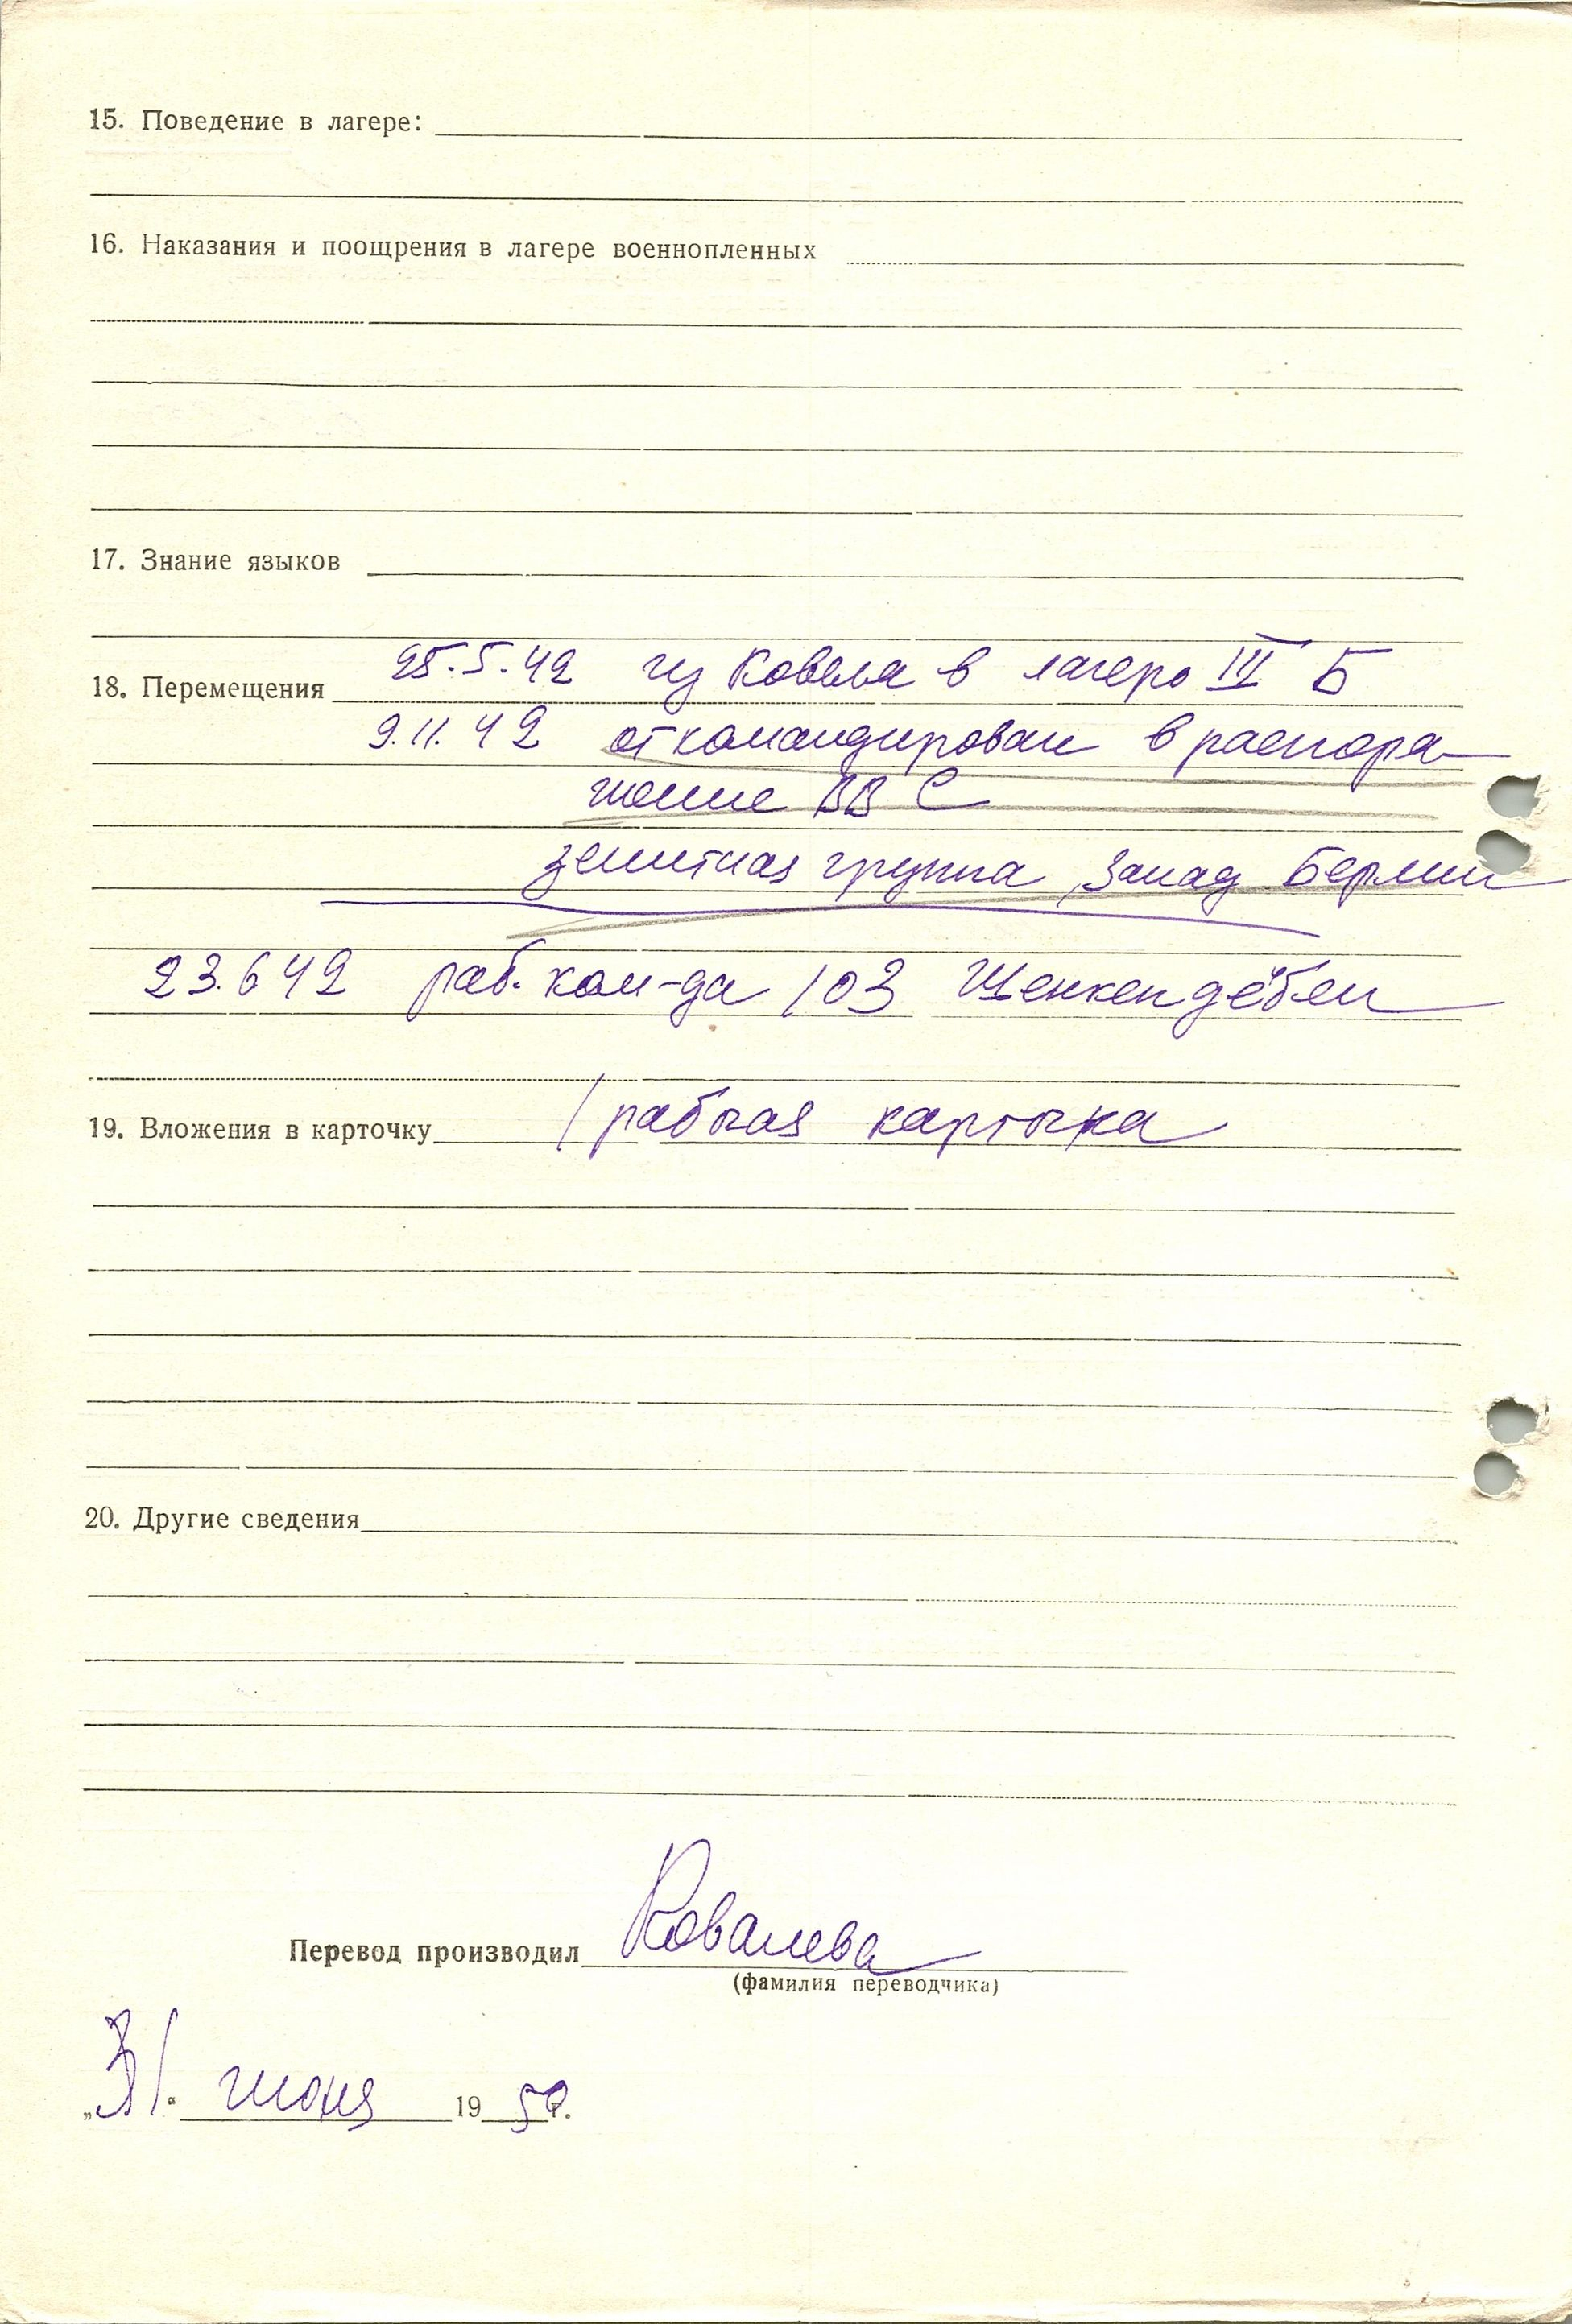 15. Поведение в лагере:
16. Наказания и поощрения в лагере военнопленных
17. Знание языков
18. Перемещения 25.5.42 из Ковеля в лагерь III Б
9.11.42 откомандирован в распоря
жение ВВС
зенитная группа, Запад Берлин
23.6 42 раб. ком-да 103 Шенкендёберн
19. Вложения в карточку 1 рабочая карточка
20. Другие сведения
Перевод производил Ковалева
(фамилия переводчика)
„31.“ июня 19 г.